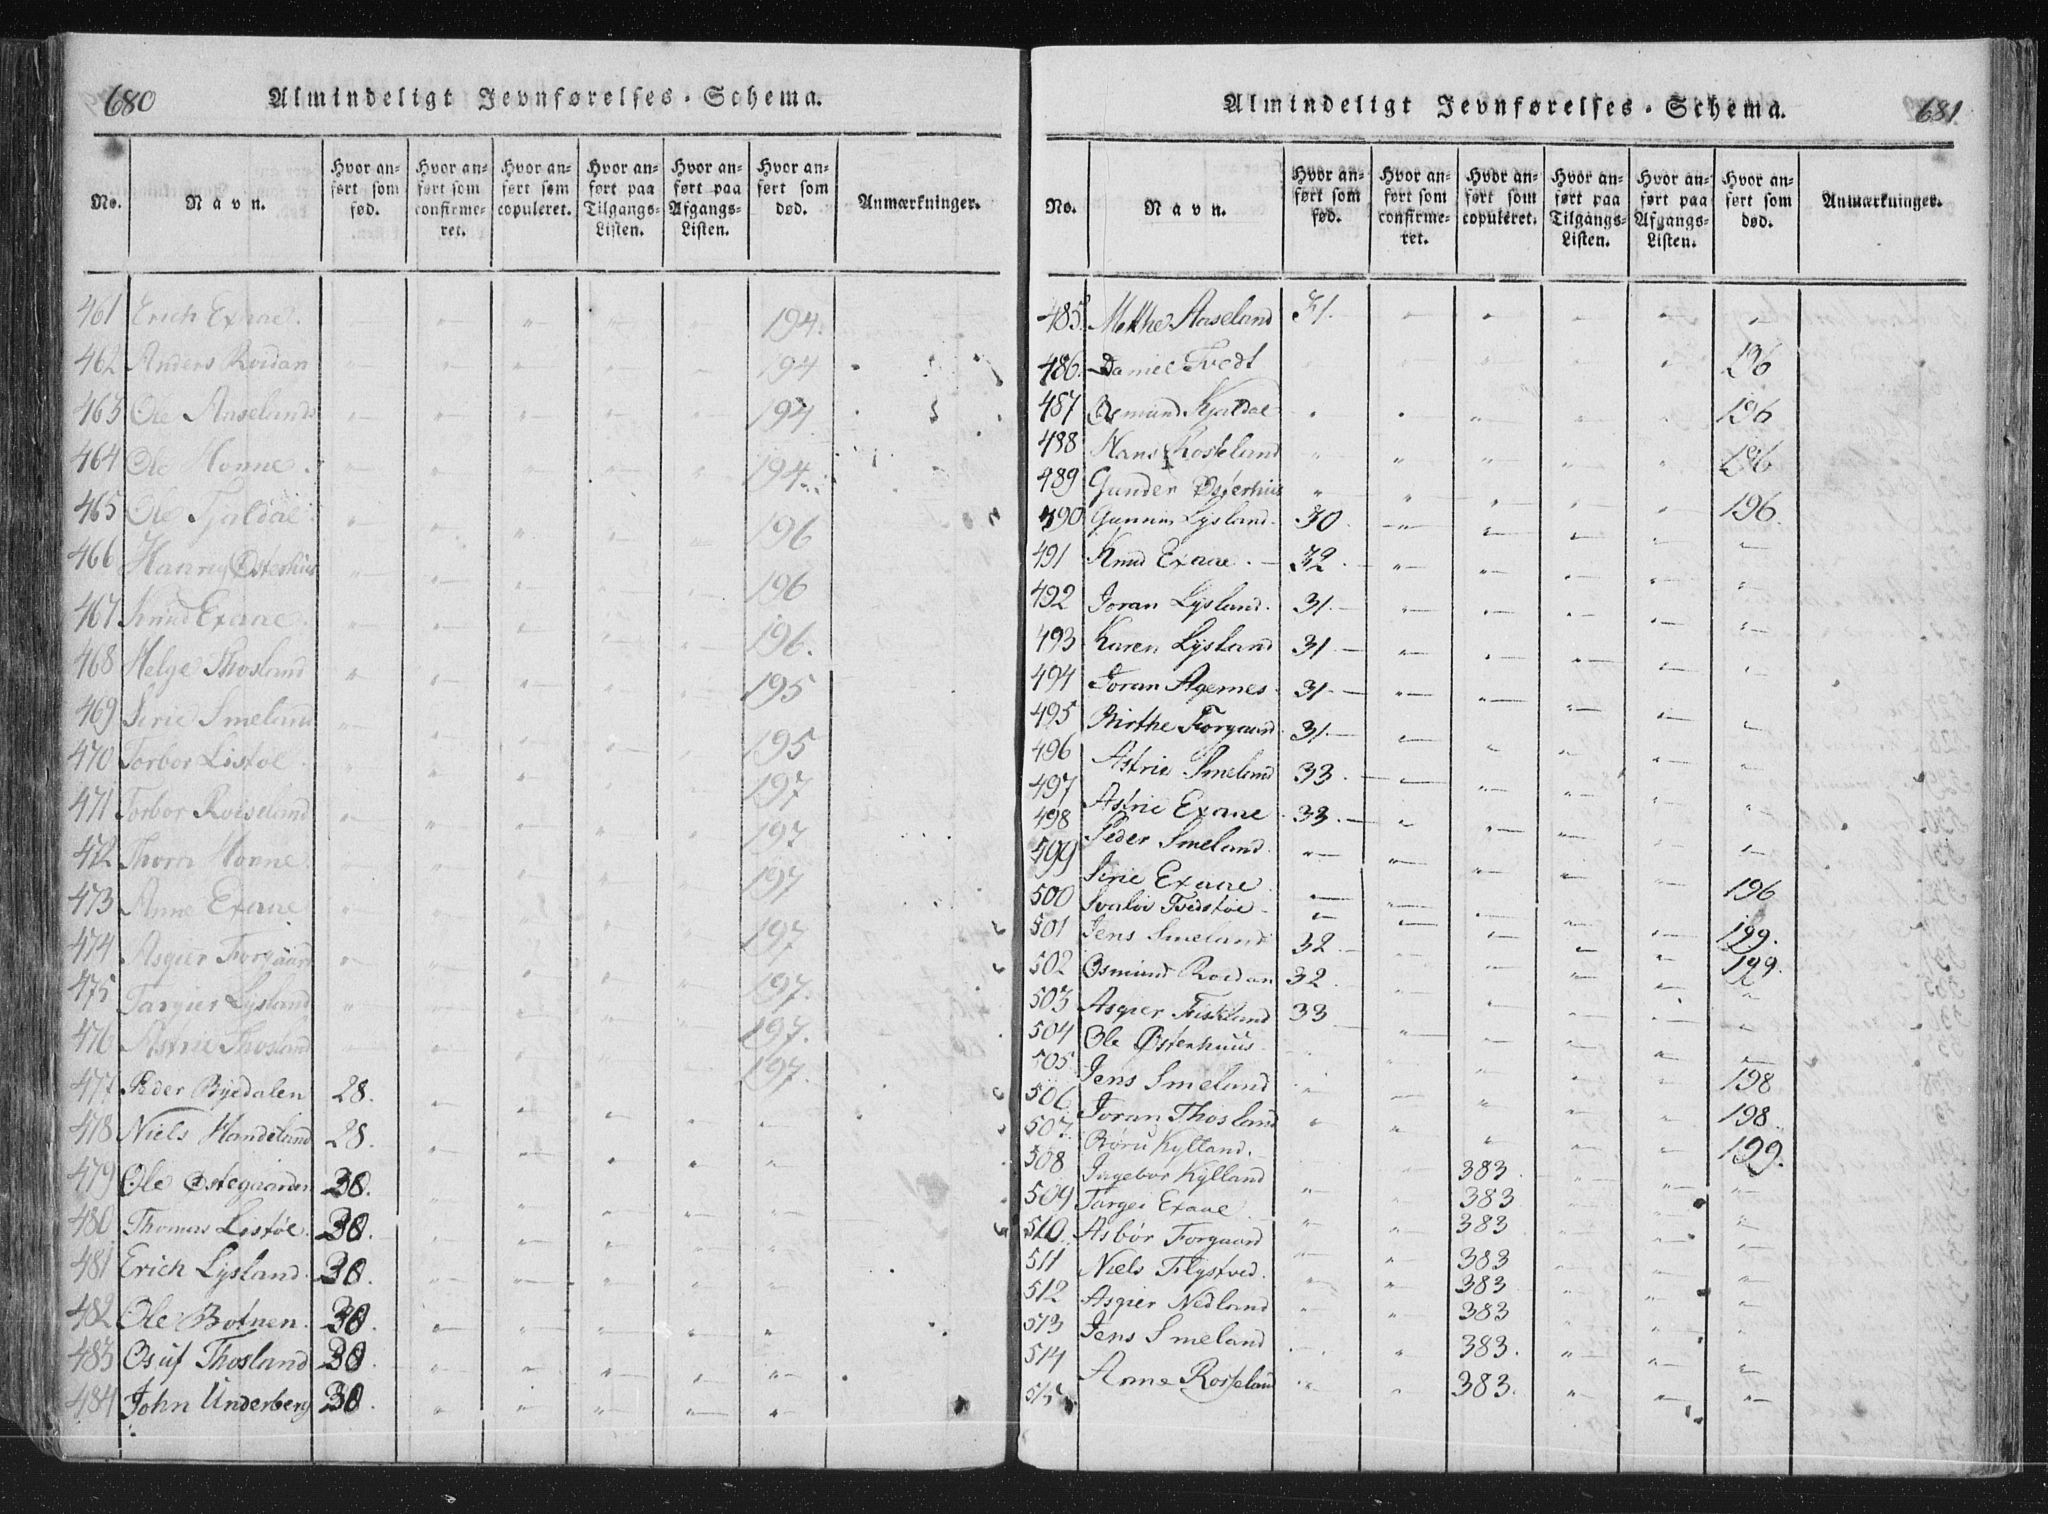 680
Almindeligt Jevnførelses-Schema.
No. Navn. Hvor anført som fød. Hvor anført som confirmeret. Hvor anført som copuleret. Hvor anført paa Tilgangs-Listen. Hvor anført paa Afgangs-Listen. Hvor anført som død. Anmærkninger.
461 Erich Exaae. 194.
462 Anders Roidan 194
463 Ole Aaseland 194
464 Ole Honne. 194.
465 Ole Tjaldal 196
466 Østerhus 196
467 Knud Exaae 196.
468 Helge Thosland 195
469 Sirie Smeland 195
470 Torbor Listøl 197
471 Torbor Roiseland 197
472 Thora Honne 197
473 Anne Exaae 197
474 Asgier Forgaard 197.
475 Targier Lysland 197.
476 Astrie Thosland 197.
477 Peder Byedalen 28.
478 Niels Handeland 28.
479 Ole Østegaarden 30.
480 Thomas Listøl. 30.
481 Erich Lysland. 30.
482 Ole Botnen. 30.
483 Osuf Thosland 30.
484 John Underberg 30.
Almindeligt Jevnførelses-Schema.
681.
No. Navn. Hvor anført som fød. Hvor anført som confirmeret. Hvor anført som copuleret. Hvor anført paa Tilgangs-Listen. Hvor anført paa Afgangs-Listen. Hvor anført som død. Anmærkninger.
485. Methe Aaseland 31.
486. Daniel Tvedt 196
487 Osmund 196
488 Hans Rosseland 196
489 Gunder Østerhus 196.
490 Lysland. 30.
491 Knud Exaae. 32.
492 Joran Lysland. 31.
493 Karen Lysland 31.
494 Joran Agernes. 31.
495 Birthe Forgaard 31.
496 Astrie Smeland 33.
497 Astrie Exaae 33.
498 Peder Smeland.
499 Sirie Exaae 196
500 Tvedstøl. 199.
501 Jens Smeland 32. 199.
502 Osmund Roidan 32.
503 Asgier 33
504 Ole Østenhuus.
505. Jens Smeland 198
506 Joran Thosland 198
507. Kylland. 199.
508 Ingebor Kylland 383.
509 Targei Exaae 383
510 Asbør Forgaard 383
511 Niels Flystved. 383
512 Asgier Nedland 383
513 Jens Smeland 383
514 Anne Rosseland 383.
515 383.